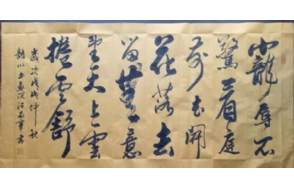 寵辱不
驚看庭
前花開
花落去
留無意
望天上雲
捲雲舒
歲次戊戌仲秋